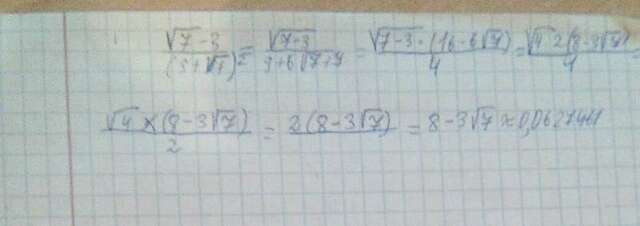 √7-3/(3+√7)² = √7-3/9+6√7+7 = √7-3·(16-6√7)/4 = √4·2(8-3√7)/4 =
√4×(8-3√7)/2 = 2(8-3√7)/ = 8-3√7≈0,0627461